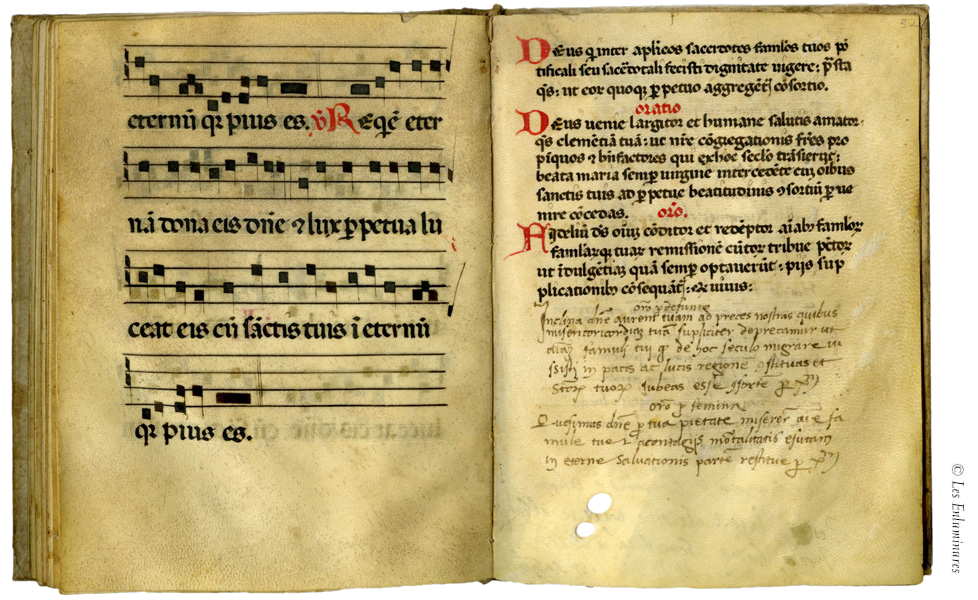 eternũ qr pius es. ℣ REqiẽ eter
nã dona eis dñe ⁊ lux ꝑpetua lu
ceat eis cũ sãctis tuis ĩ eternũ
qr pius es.
32
DEus q inter aplicos sacerdotes famlos tuos põ
tificali seu sacẽdotali fecisti dignitate uigere: p̃sta
q̃s: ut eor quoqꝫ ꝑpetuo aggregẽt̃ cõsortio.
oratio
DEus uenie largitor et humane salutis amator.
q̃s clemẽtiã tuã: ut nr̃e cõgregationis fr̃es pro
pĩquos ⁊ bñfactores qui ex hoc seclo trãsierũt:
beata maria semꝑ uirgine intercedẽte cũ oĩbus
sanctis tuis ad ꝑpetue beatitudinis ꝯsortiũ ꝑue
nire cõcedas. orõ.
FIdeliũ d̃s oĩuꝫ cõditor et redẽptor aĩabꝫ famlor
famlarqꝫ tuar remissionẽ cũctor tribue pctor
ut ĩdulgẽtiaꝫ quã semꝑ optauerũt: pijs sup
plicationibꝫ cõsequãt̃: Qui uiuis:
orõ ꝑ defuncto
Inclina dñe aurem tuam ad preces nostras quibus
misericordiaꝫ tuã supliciter deprecamur ut
aĩaꝫ famuli tui quã de hoc seculo migrare iu
sisti in pacis ac lucis regione ꝯstituas et
Sctoꝝ tuoꝝ iubeas esse ꝯsorte ꝑ xp̃m
orõ ꝑ femina
Quesumus dñe ꝑ tua pietate miserer̃ aĩe fa
mule tue ⁊ a contagijs mortalitatis exutam
in eterne saluationis partẽ restitue ꝑ xp̃m
© Les Enluminures